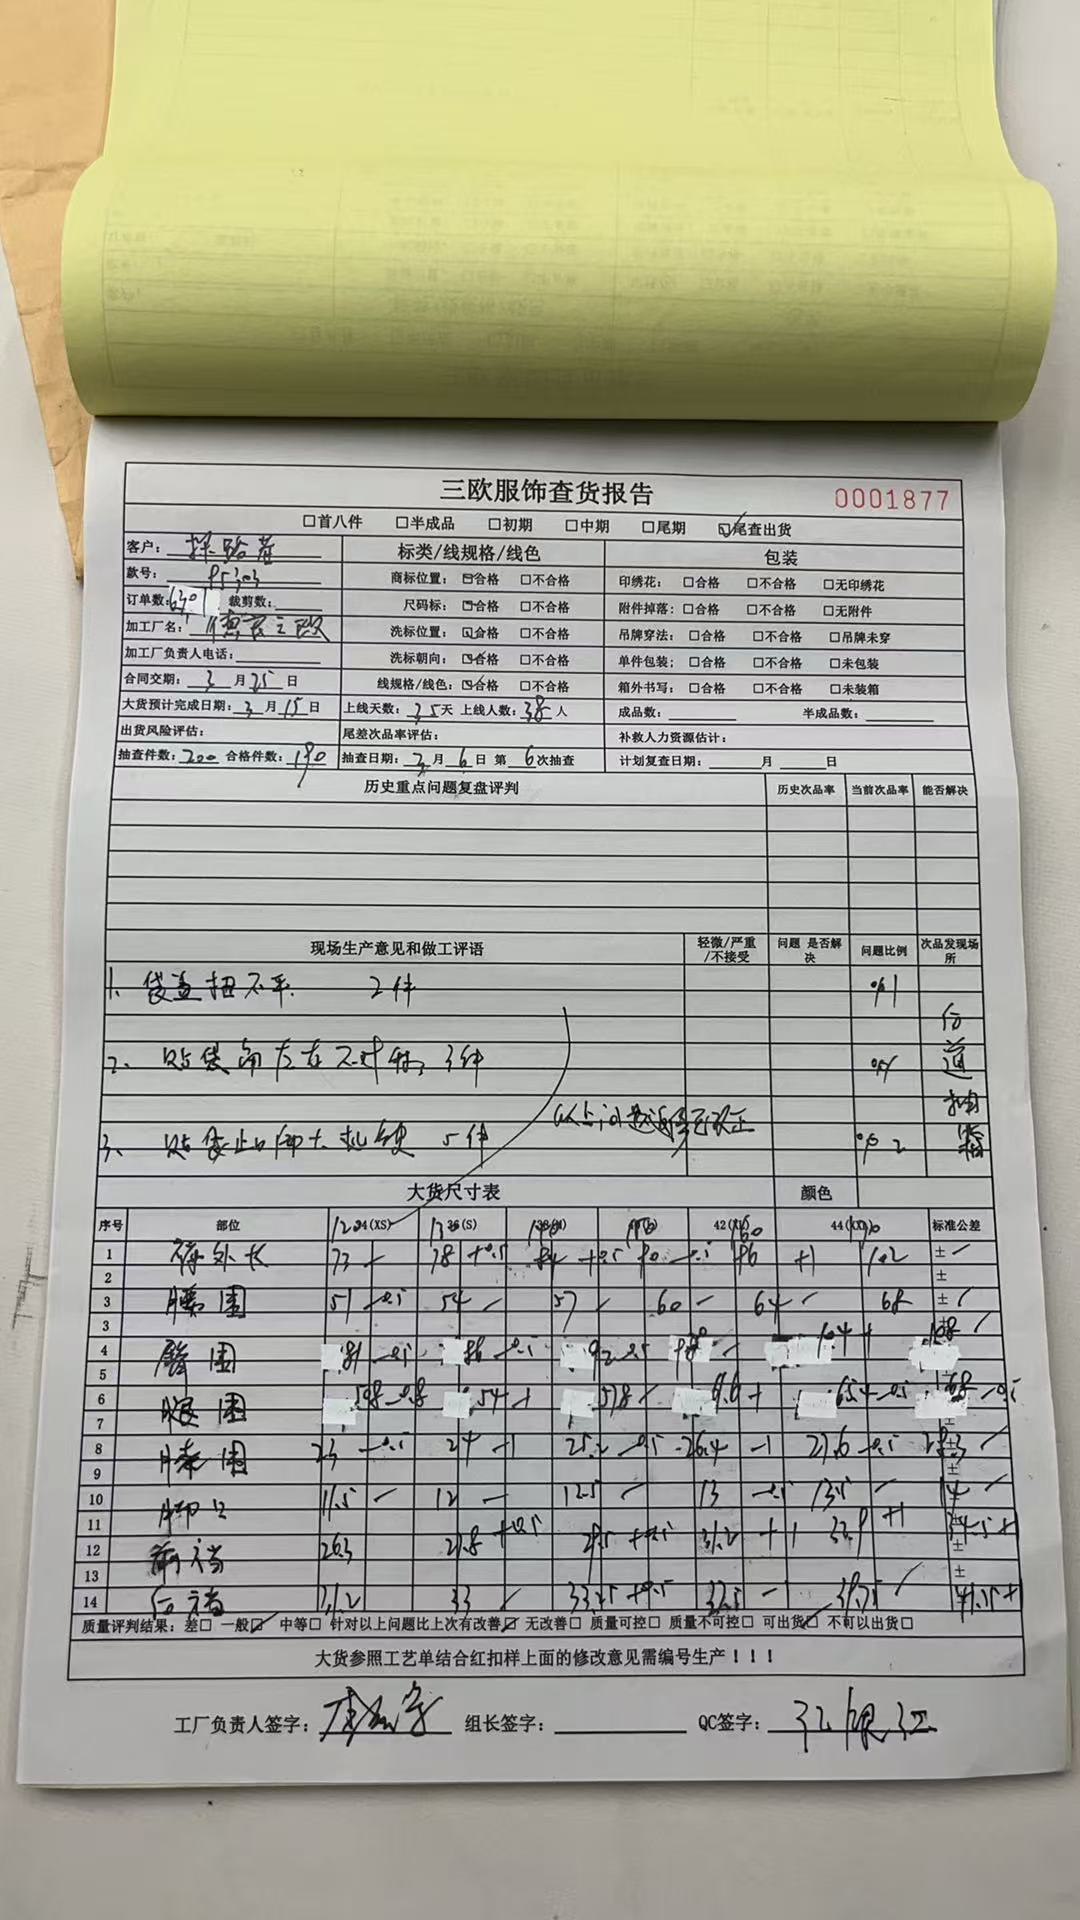 三欧服饰查货报告
0001877
□首八件 □半成品 □初期 □中期 □尾期 ☑尾查出货
客户: 探路者 标类/线规格/线色 包装
款号: 95303 商标位置: ☑合格 □不合格 印绣花: □合格 □不合格 □无印绣花
订单数: 6301 裁剪数: 尺码标: ☑合格 □不合格 附件掉落: □合格 □不合格 □无附件
加工厂名: 洗标位置: ☑合格 □不合格 吊牌穿法: □合格 □不合格 □吊牌未穿
加工厂负责人电话: 洗标朝向: ☑合格 □不合格 单件包装: □合格 □不合格 □未包装
合同交期: 3月25日 线规格/线色: ☑合格 □不合格 箱外书写: □合格 □不合格 □未装箱
大货预计完成日期: 3月15日 上线天数: 35天 上线人数: 38人 成品数: 半成品数:
出货风险评估: 尾差次品率评估: 补救人力资源估计:
抽查件数: 200 合格件数: 190 抽查日期: 3月6日 第6次抽查 计划复查日期: 月 日
历史重点问题复盘评判 历史次品率 当前次品率 能否解决
现场生产意见和做工评语 轻微/严重/不接受 问题 是否解决 问题比例 次品发现场所
1、袋盖扭不平. 2件 %1
2、贴袋 左右不对称, 3件
3、贴袋 5件
以上问题 已改正
后道
大货尺寸表 颜色
序号 部位 34(XS) 36(S) 42(XL) 标准公差
1 裤外长 73 - 78 +0.5 84 +0.5 90 -0.5 96 +1 102 ±
2 ±
3 腰围 51 -0.5 54 - 57 - 60 - 64 - 68 ±
3
4 臀围 81 -0.5 86 -0.5 92 -0.5 98 -
5
6 腿围 54 + 57.8
7
8 膝围 23 -0.5 24 -1 25.2 -0.5 26.4 -1 27.6 -0.5
9
10 脚口 11.5 - 12 - 12.5 - 13 -0.5 13.5 - 14 -
11
12 前裆 26.3 27.8 +0.5 29.5 +0.5 31.2 +1 32.9 +1 34.5 +1
13 ±
14 后裆 31.2 33
质量评判结果: 差□ 一般☑ 中等□ 针对以上问题比上次有改善☑ 无改善□ 质量可控□ 质量不可控□ 可出货☑ 不可以出货□
大货参照工艺单结合红扣样上面的修改意见需编号生产！！！
工厂负责人签字: 组长签字: QC签字: